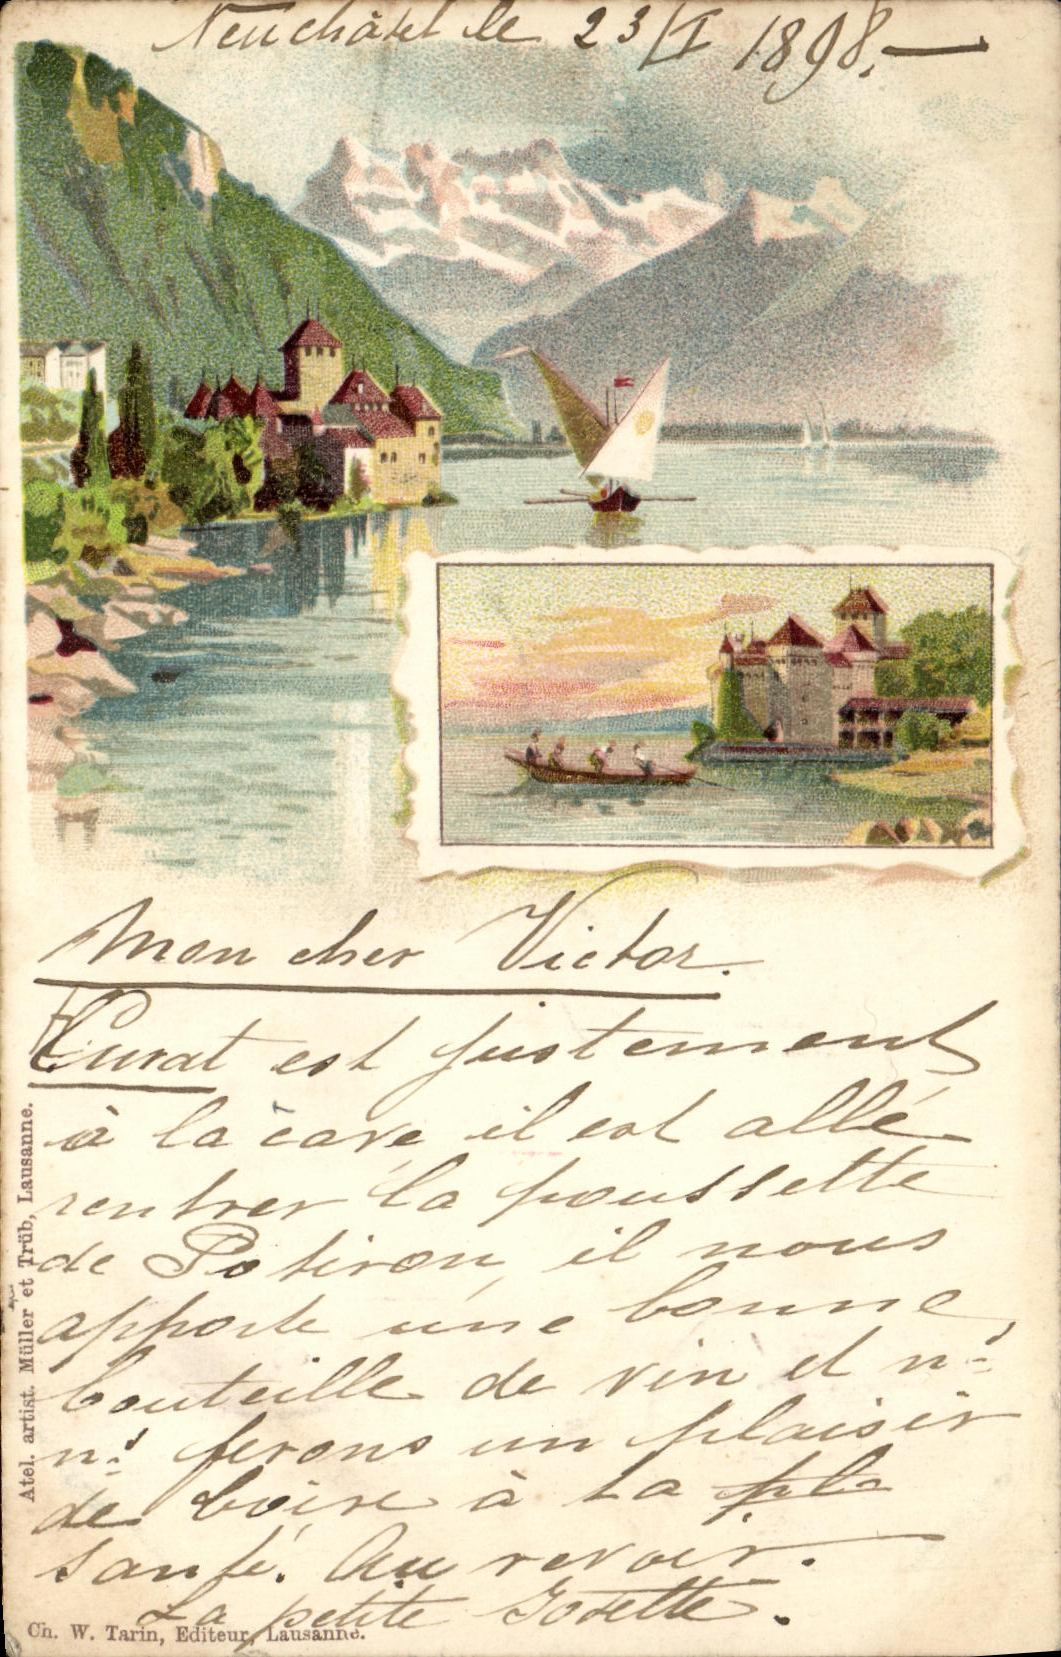 Neuchâtel le 23/I 1898.—
Mon cher Victor.
Curat est justement
à la cave, il est allé
rentrer la poussette
de Potiron, il nous
apporte une bonne
bouteille de vin et n.s
n.s ferons un plaisir
de boire à ta pl
santé. Au revoir.
La petite Josette.
Atel. artist. Müller et Trüb, Lausanne.
Ch. W. Tarin, Editeur, Lausanne.